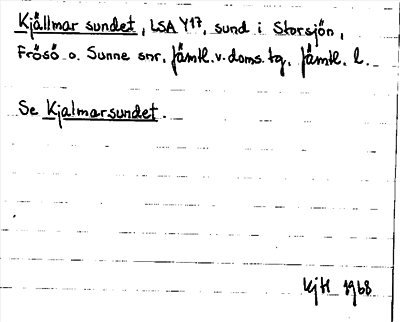 Kjällmar sundet, LSA Y17, sund i Storsjön,
Frösö o. Sunne snr, Jämtl. v. doms. tg, Jämtl. l.
Se Kjalmarsundet.
KjH 1968